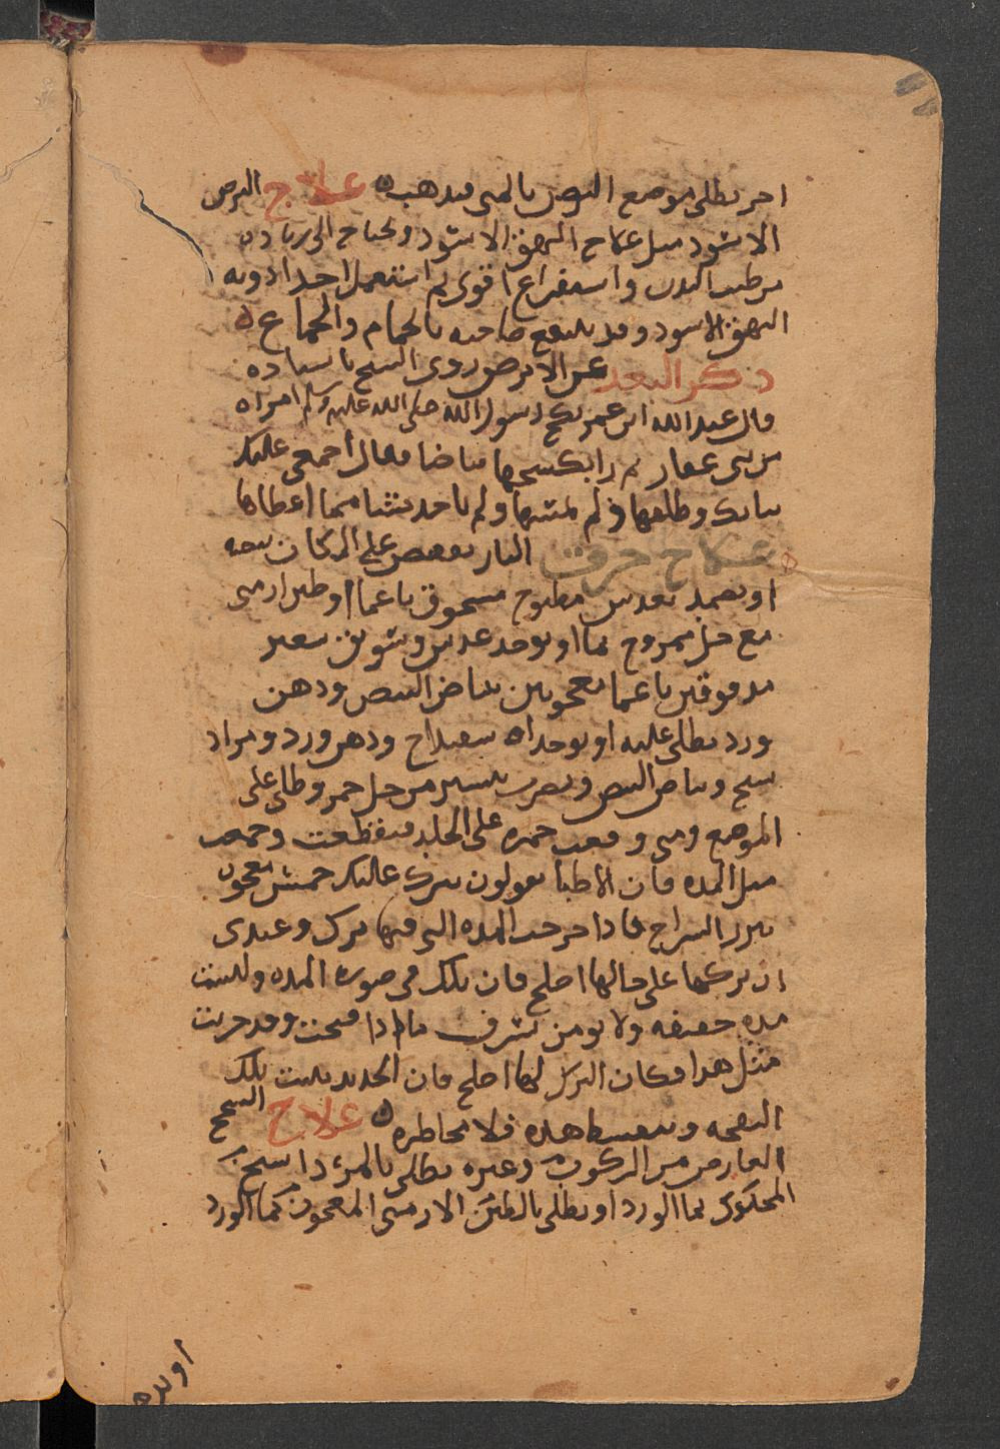 اخر يطلى موضع البرص بالمنى فيذهب علاج البرص
الاسود مثل علاج البهق الاسود ويحتاج الى زياده
ترطيب البدن واستفراغ اقوى ثم استعمل احد ادويه
البهق الاسود وقد ينتفع صاحبه بالحمام والجماع
ذكر البعد عن الابرص روى الشيخ باسناده
قال عبد الله ابن عمر نكح رسول الله صلى الله عليه وسلم امراه
من بنى غفار ثم راى بكشحها بياضا فقال أجمعى عليك
ثيابك وطلقها ولم يمسها ولم ياخذ شيا مما اعطاها
علاج حرق النار بعفص على المكان بيضه
او يضمد بعدس مطبوخ مسحوق ناعما او طين ارمنى
مع خل ممزوج بما او يوخذ عدس وسويق شعير
مدقوقين ناعما معجونين ببياض البيض ودهن
ورد يطلى عليه او يوخذ اسفيداج ودهن ورد ومرداد
سنج وبياض البيض ويضرب بيسير من خل خمر وطلى على
الموضع ومتى وقعت جمره على الجلد فتقطعت وجمعت
مثل المده فان الاطبا يقولون يترك عليك حمس معجون
بزر السراج فاذا خرجت المده التى فيها ترك وعندى
ان تركها على حالها اصلح فان تلك فى صوره المده وليست
مده حقيقه ولا يومن شرف ما اذا فتحت وقد جربت
مثل هذا فكان الترك لها اصلح فان الجلد يثبت تلك
النفخه وتنفسط هذه فلا مخاطره علاج السحج
العارض من الركوب وغيره يطلى بالمرداسنج
المحكوك بما الورد او يطلى بالطين الارمنى المعجون بما الورد
او يده